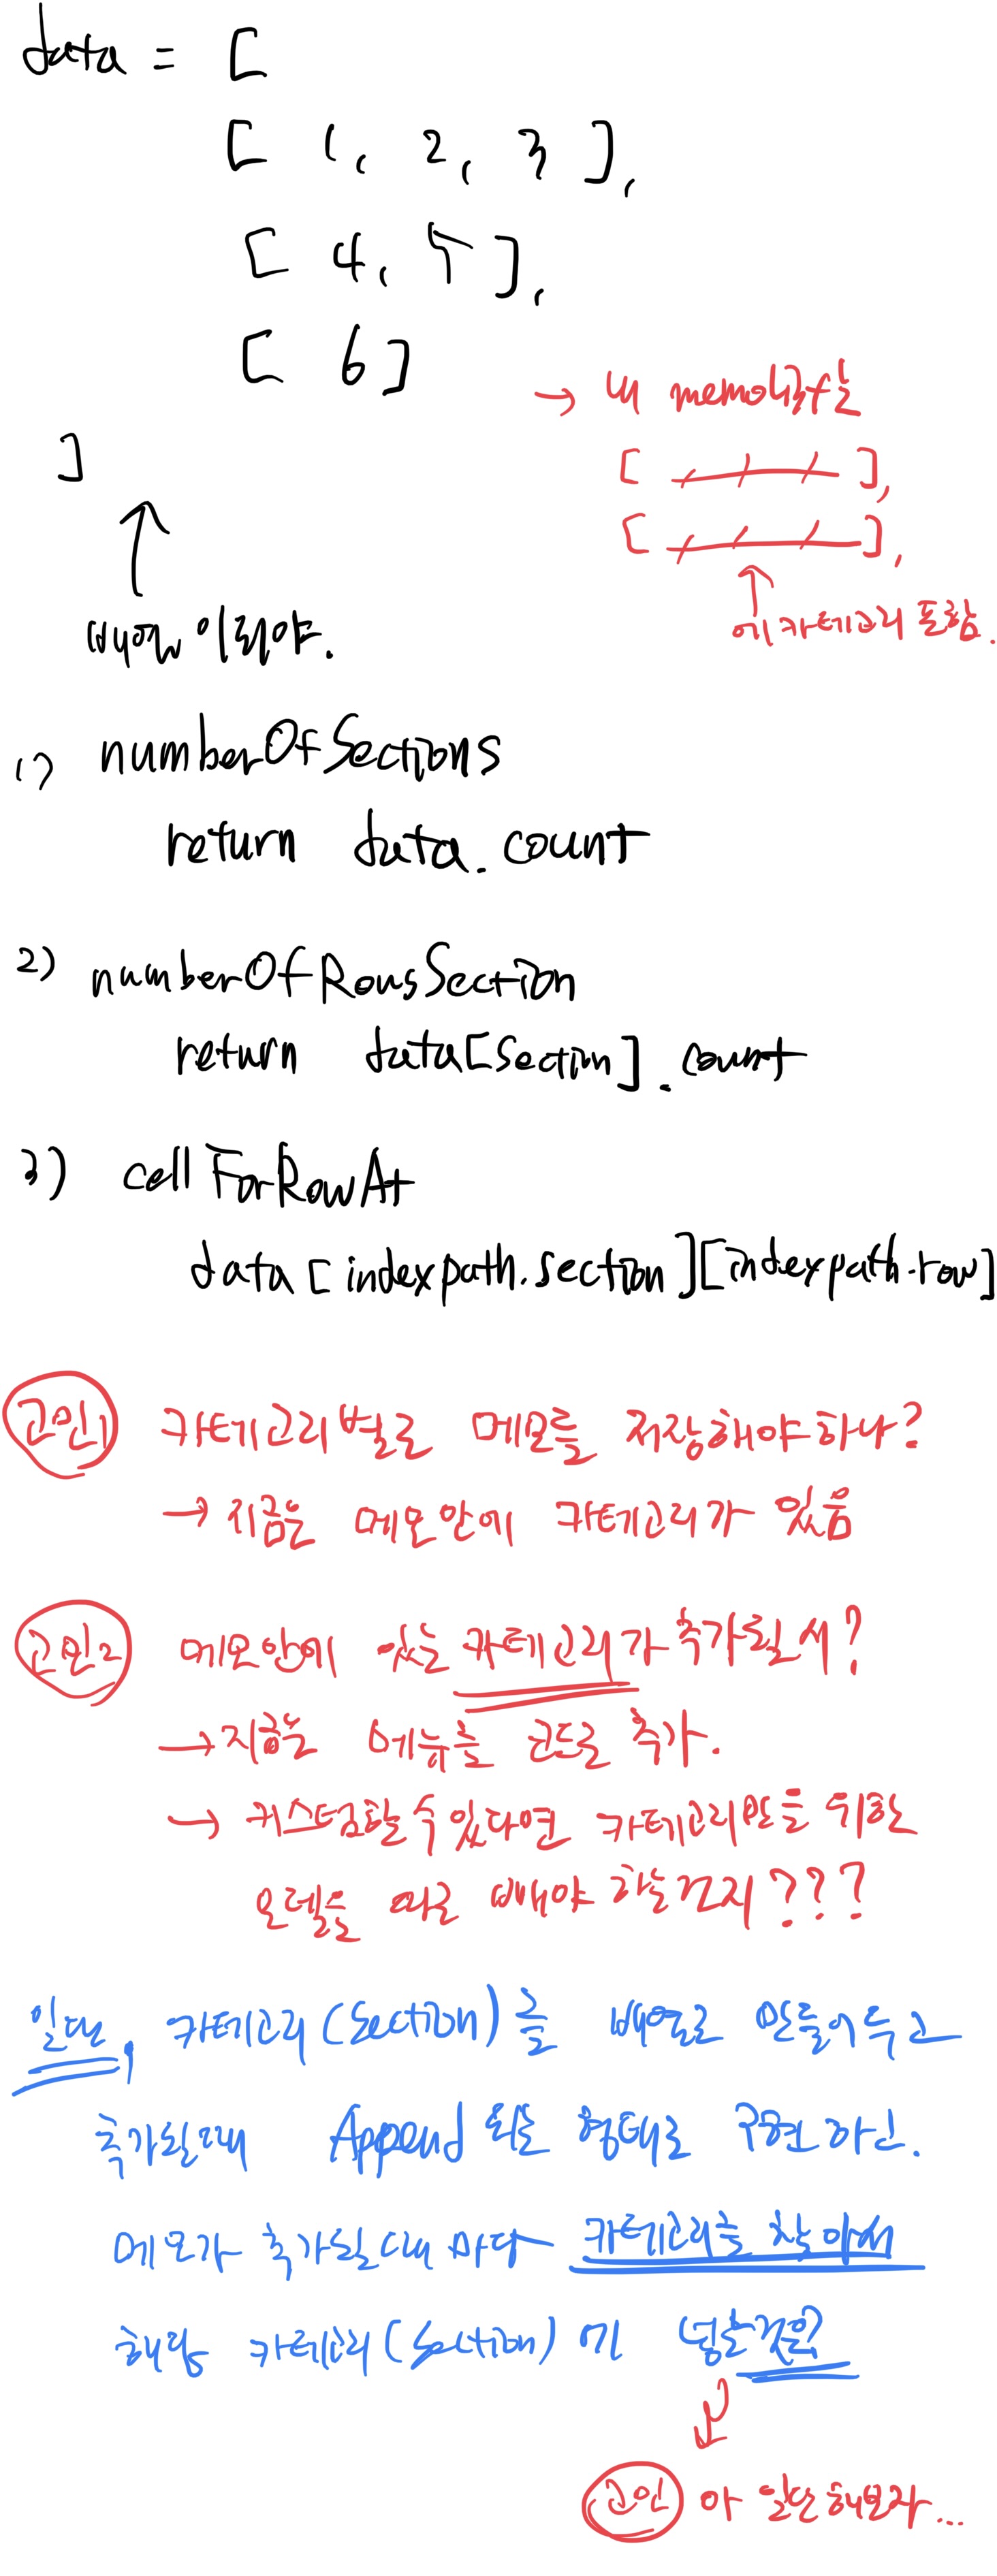 data = [
[ 1, 2, 3 ],
[ 4, 5 ],
[ 6 ]
]
→ 내 memo 구조는
[ ],
[ ],
에 카테고리 포함.
배열이 이래야.
1) numberOfSections
return data.count
2) numberOfRowsSection
return data[section].count
3) cellForRowAt
data[indexpath.section][indexpath.row]
고민1 카테고리별로 메모를 저장해야하나?
→ 지금은 메모안에 카테고리가 있음
고민2 메모안에 있는 카테고리가 추가될시?
→ 지금은 메뉴를 코드로 추가.
→ 커스텀할 수 있다면 카테고리만을 위한
모델을 따로 빼야 하는건지???
일단, 카테고리(Section)를 배열로 만들어두고
추가될때 Append 되는 형태로 구현하고.
메모가 추가될때마다 카테고리를 찾아서
해당 카테고리(Section)에 넣는것은?
고민 아 일단해보자...